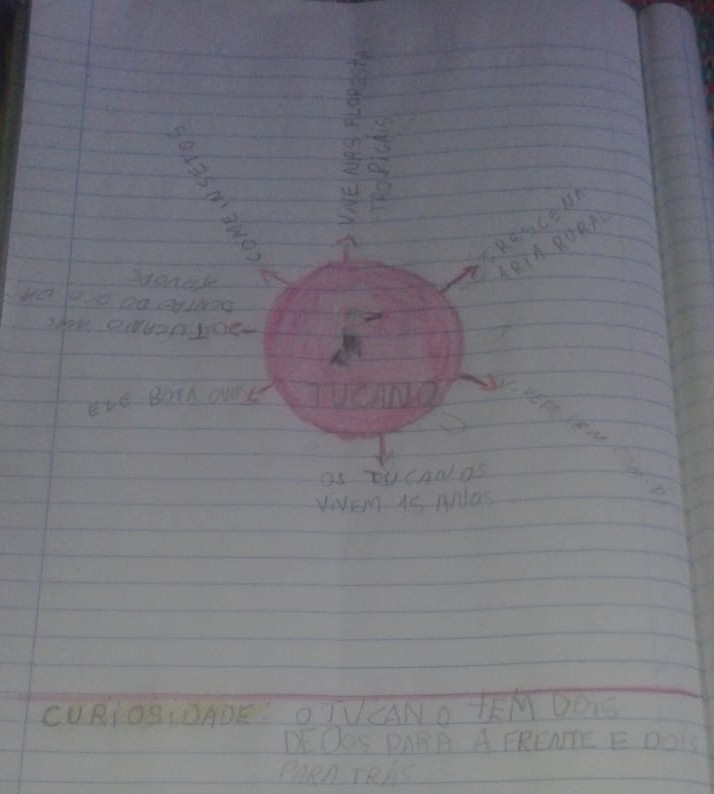 VIVE NAS FLORESTA
TROPICAIS
COME INSETOS
CRESCE NA
ARIA RURAL
O TUCANO
DENTRO DO
ELE BOTA OVO
TUCANO
OS TUCANOS
VIVEM 15 ANOS
CURIOSIDADE: O TUCANO TEM DOIS
DEDOS PARA A FRENTE E DOIS
PARA TRÁS